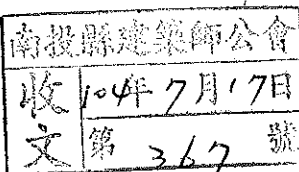 南投縣建築師公會
收文
104年7月17日
第 367 號